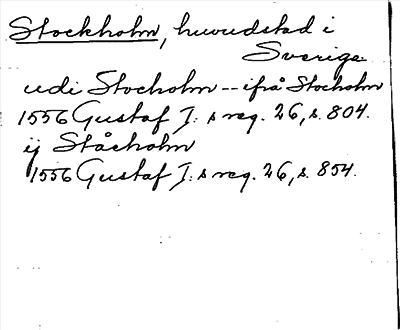 Stockholm, huvudstad i
Sverige
udi Stocholm -- ifrå Stocholm
1556 Gustaf I:s reg. 26, s. 804.
ij Ståcholm
1556 Gustaf I:s reg. 26, s. 854.